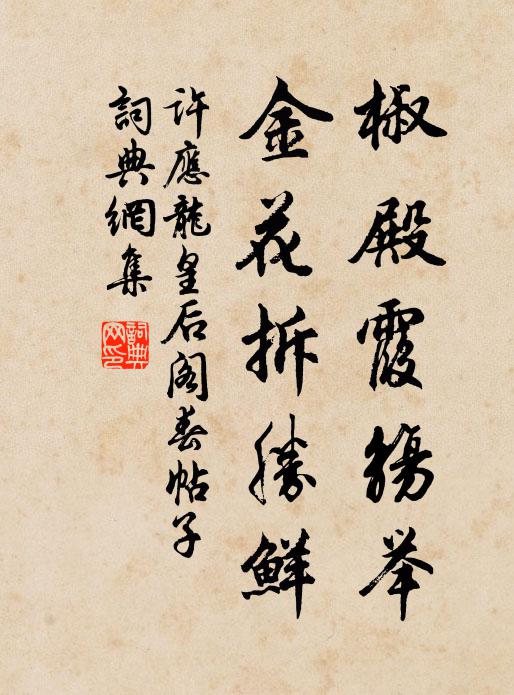 椒殿霞觴举
金花拆勝鮮
許應龍皇后阁春帖子
詞典網集
詞典网印